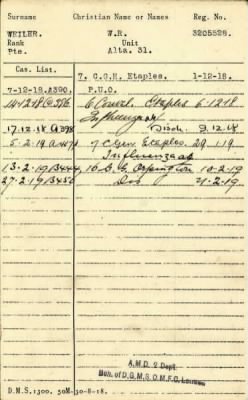 Surname Christian Name or Names Reg. No.
WEILER. W.R. 3205528.
Rank Unit
Pte. Alta. 31.
Cas. List.
7. C.G.H. Etaples. 1-12-18.
7-12-18.A390. P.U.O.
14-12-18 Etaples 6-12-18
Influenza
17.12.18 A398 Disch. 9.12.18
5-2-19 7 C Gen Etaples 29-1-19
Influenza
13-2-19 16 Orpington 10-2-19
27-2-19 Dis
A.M.D. 2 Dept.
D.G.M.S.O.M.F.C. London
D.M.S.1300. 50M-30-8-18.